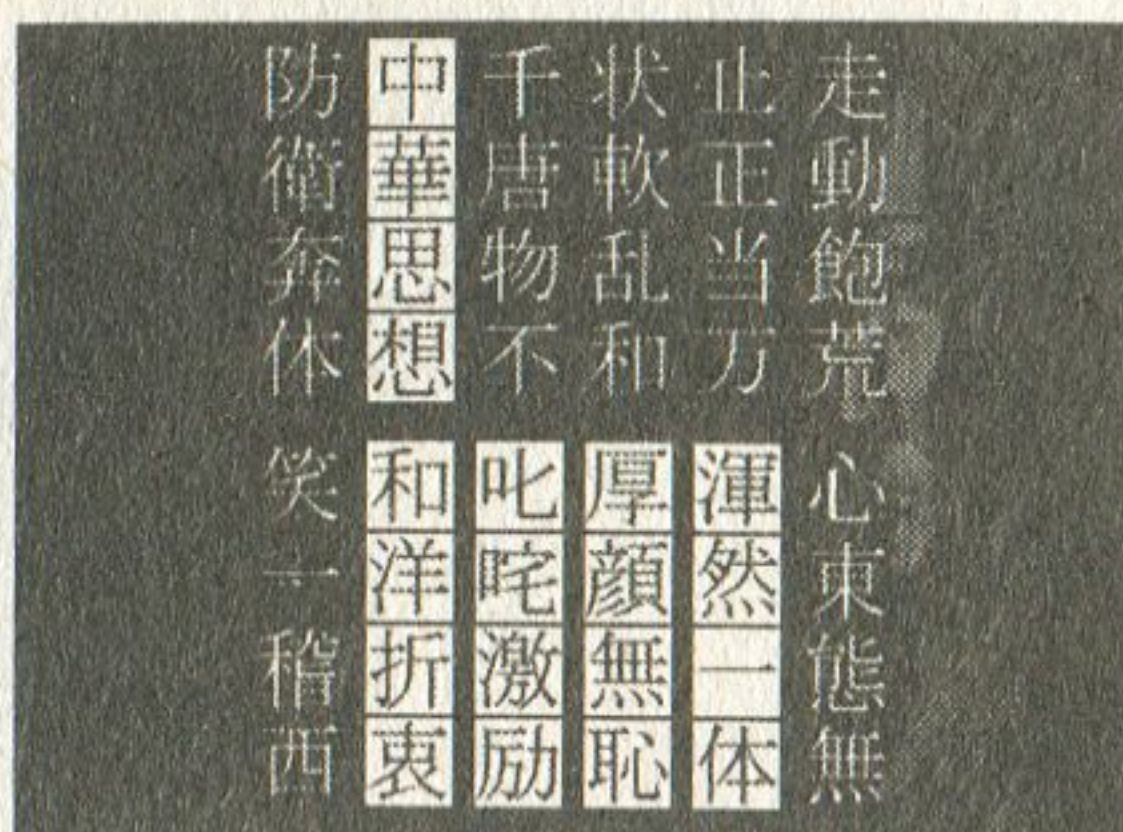 走動飽荒
止正当万
状軟乱和
千唐物不
中華思想
防衛奔体
心東態無
渾然一体
厚顔無恥
叱咤激励
和洋折衷
笑一稽西